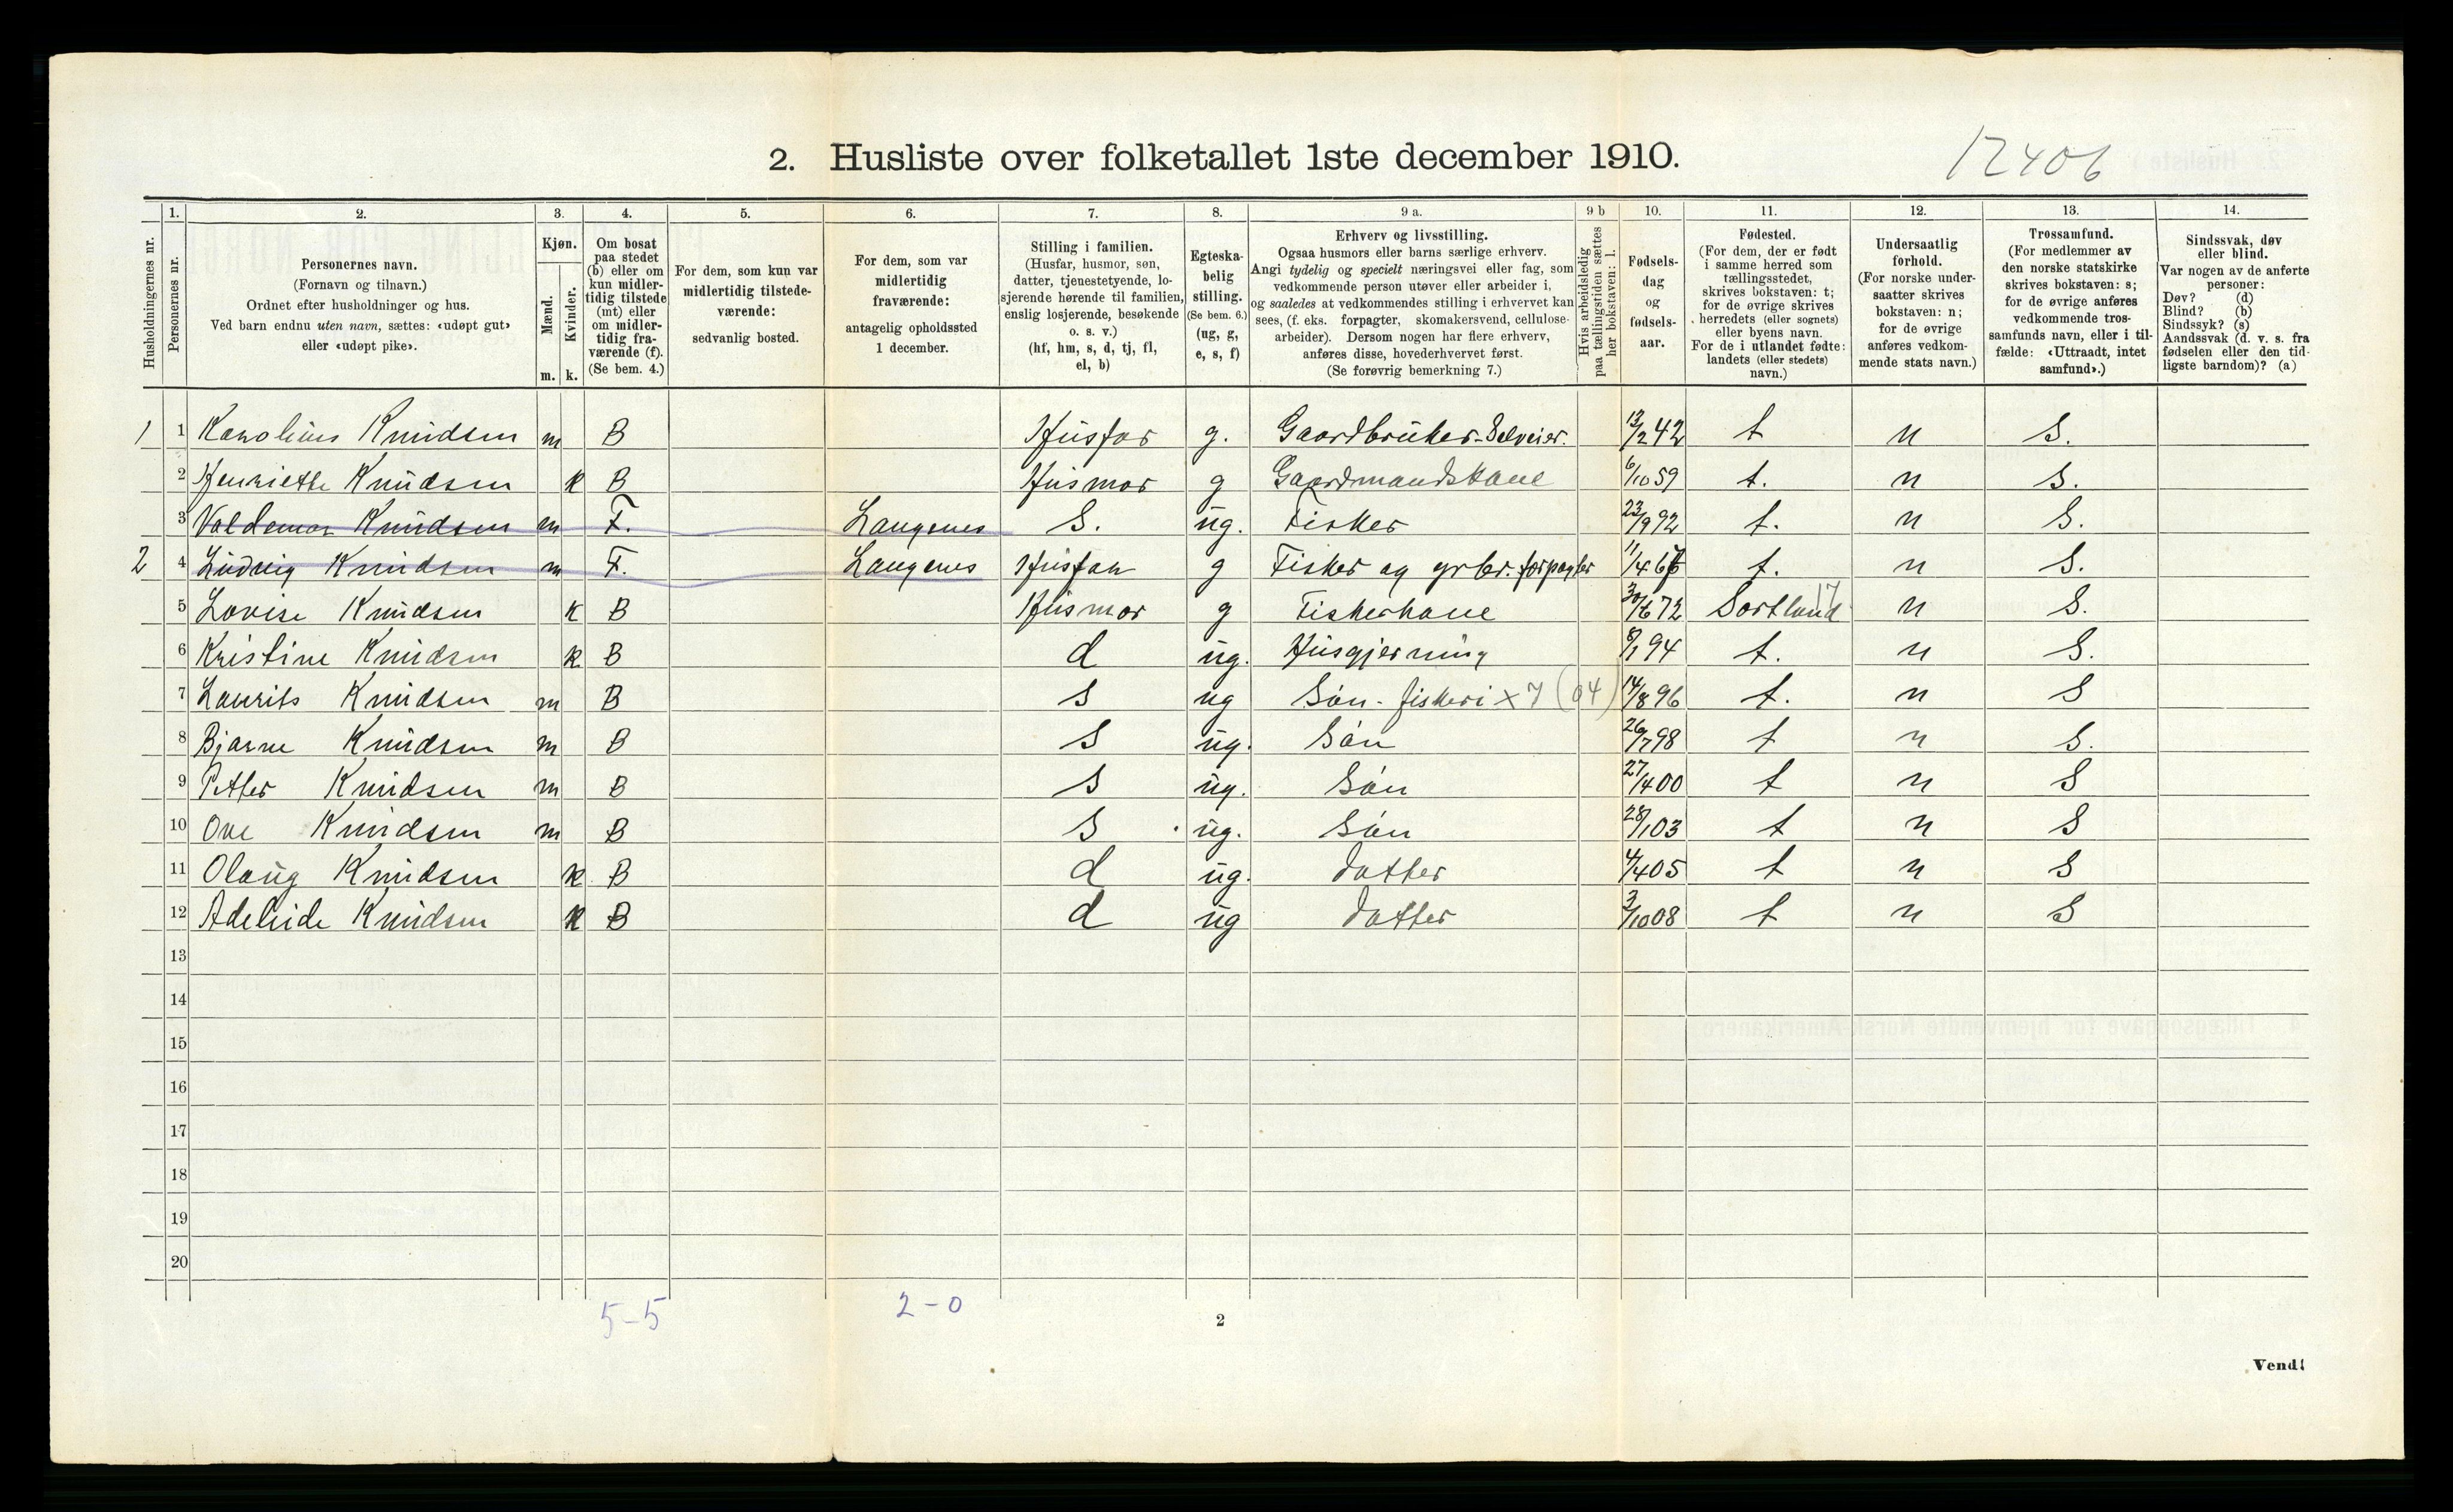 2. Husliste over folketallet 1ste december 1910.
12406
Husholdningernes nr.
1.
Personernes nr.
2.
Personernes navn.
(Fornavn og tilnavn.)
Ordnet efter husholdninger og hus.
Ved barn endnu uten navn, sættes: «udøpt gut»
eller «udøpt pike».
3.
Kjøn.
Mænd.
Kvinder.
m. k.
4.
Om bosat
paa stedet
(b) eller om
kun midler-
tidig tilstede
(mt) eller
om midler-
tidig fra-
værende (f).
(Se bem. 4.)
5.
For dem, som kun var
midlertidig tilstede-
værende:
sedvanlig bosted.
6.
For dem, som var
midlertidig
fraværende:
antagelig opholdssted
1 december.
7.
Stilling i familien.
(Husfar, husmor, søn,
datter, tjenestetyende, lo-
sjerende hørende til familien,
enslig losjerende, besøkende
o. s. v.)
(hf, hm, s, d, tj, fl,
el, b)
8.
Egteska-
belig
stilling.
(Se bem. 6.)
(ug, g,
e, s, f)
9 a.
Erhverv og livsstilling.
Ogsaa husmors eller barns særlige erhverv.
Angi tydelig og specielt næringsvei eller fag, som
vedkommende person utøver eller arbeider i,
og saaledes at vedkommendes stilling i erhvervet kan
sees, (f. eks. forpagter, skomakersvend, cellulose-
arbeider). Dersom nogen har flere erhverv,
anføres disse, hovederhvervet først.
(Se forøvrig bemerkning 7.)
9 b
Hvis arbeidsledig
paa tællingstiden sættes
her bokstaven: l.
10.
Fødsels-
dag
og
fødsels-
aar.
11.
Fødested.
(For dem, der er født
i samme herred som
tællingsstedet,
skrives bokstaven: t;
for de øvrige skrives
herredets (eller sognets)
eller byens navn.
For de i utlandet fødte:
landets (eller stedets)
navn.)
12.
Undersaatlig
forhold.
(For norske under-
saatter skrives
bokstaven: n;
for de øvrige
anføres vedkom-
mende stats navn.)
13.
Trossamfund.
(For medlemmer av
den norske statskirke
skrives bokstaven: s;
for de øvrige anføres
vedkommende tros-
samfunds navn, eller i til-
fælde: «Uttraadt, intet
samfund».)
14.
Sindssvak, døv
eller blind.
Var nogen av de anførte
personer:
Døv? (d)
Blind? (b)
Sindssyk? (s)
Aandssvak (d. v. s. fra
fødselen eller den tid-
ligste barndom)? (a)
1 1 Karolius Knudsen m B Husfar g. Gaardbruker-Selveier. 13/2 42 t n S.
2 Henriette Knudsen k B Husmor g Gaardmandskone 6/10 59 t. n S.
3 Valdemar Knudsen m F. Langenes S. ug. Fisker 23/9 92 t. n S.
2 4 Ludvig Knudsen m F. Langenes Husfar g Fisker og grbr. forpagter 11/4 t. n S.
5 Lovise Knudsen k B Husmor g Fiskerkone 30/6 72 Sortland 17 n S.
6 Kristine Knudsen k B d ug. Husgjerning 8/1 94 t. n S.
7 Laurits Knudsen m B S ug Søn - fiskeri x 7 (04) 14/8 96 t. n S
8 Bjarne Knudsen m B S ug. Søn 26/7 98 t n S.
9 Petter Knudsen m B S ug. Søn 27/4 00 t n S
10 Ove Knudsen m B S ug. Søn 28/1 03 t n S
11 Olaug Knudsen k B d ug. datter 4/4 05 t n S
12 Adeleide Knudsen k B d ug datter 3/10 08 t n S
13
14
15
16
17
18
19
20
5-5
2-0
2
Vend!